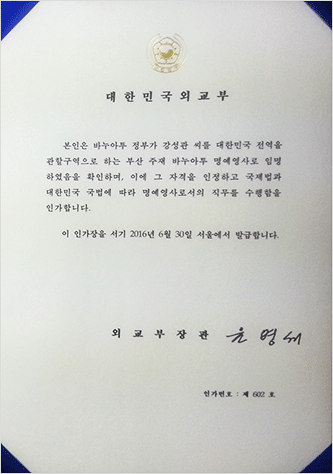 대한민국외교부
본인은 바누아투 정부가 강성관 씨를 대한민국 전역을
관할구역으로 하는 부산 주재 바누아투 명예영사로 임명
하였음을 확인하며, 이에 그 자격을 인정하고 국제법과
대한민국 국법에 따라 명예영사로서의 직무를 수행함을
인가합니다.
이 인가장을 서기 2016년 6월 30일 서울에서 발급합니다.
외교부장관 윤병세
인가번호 : 제 602 호